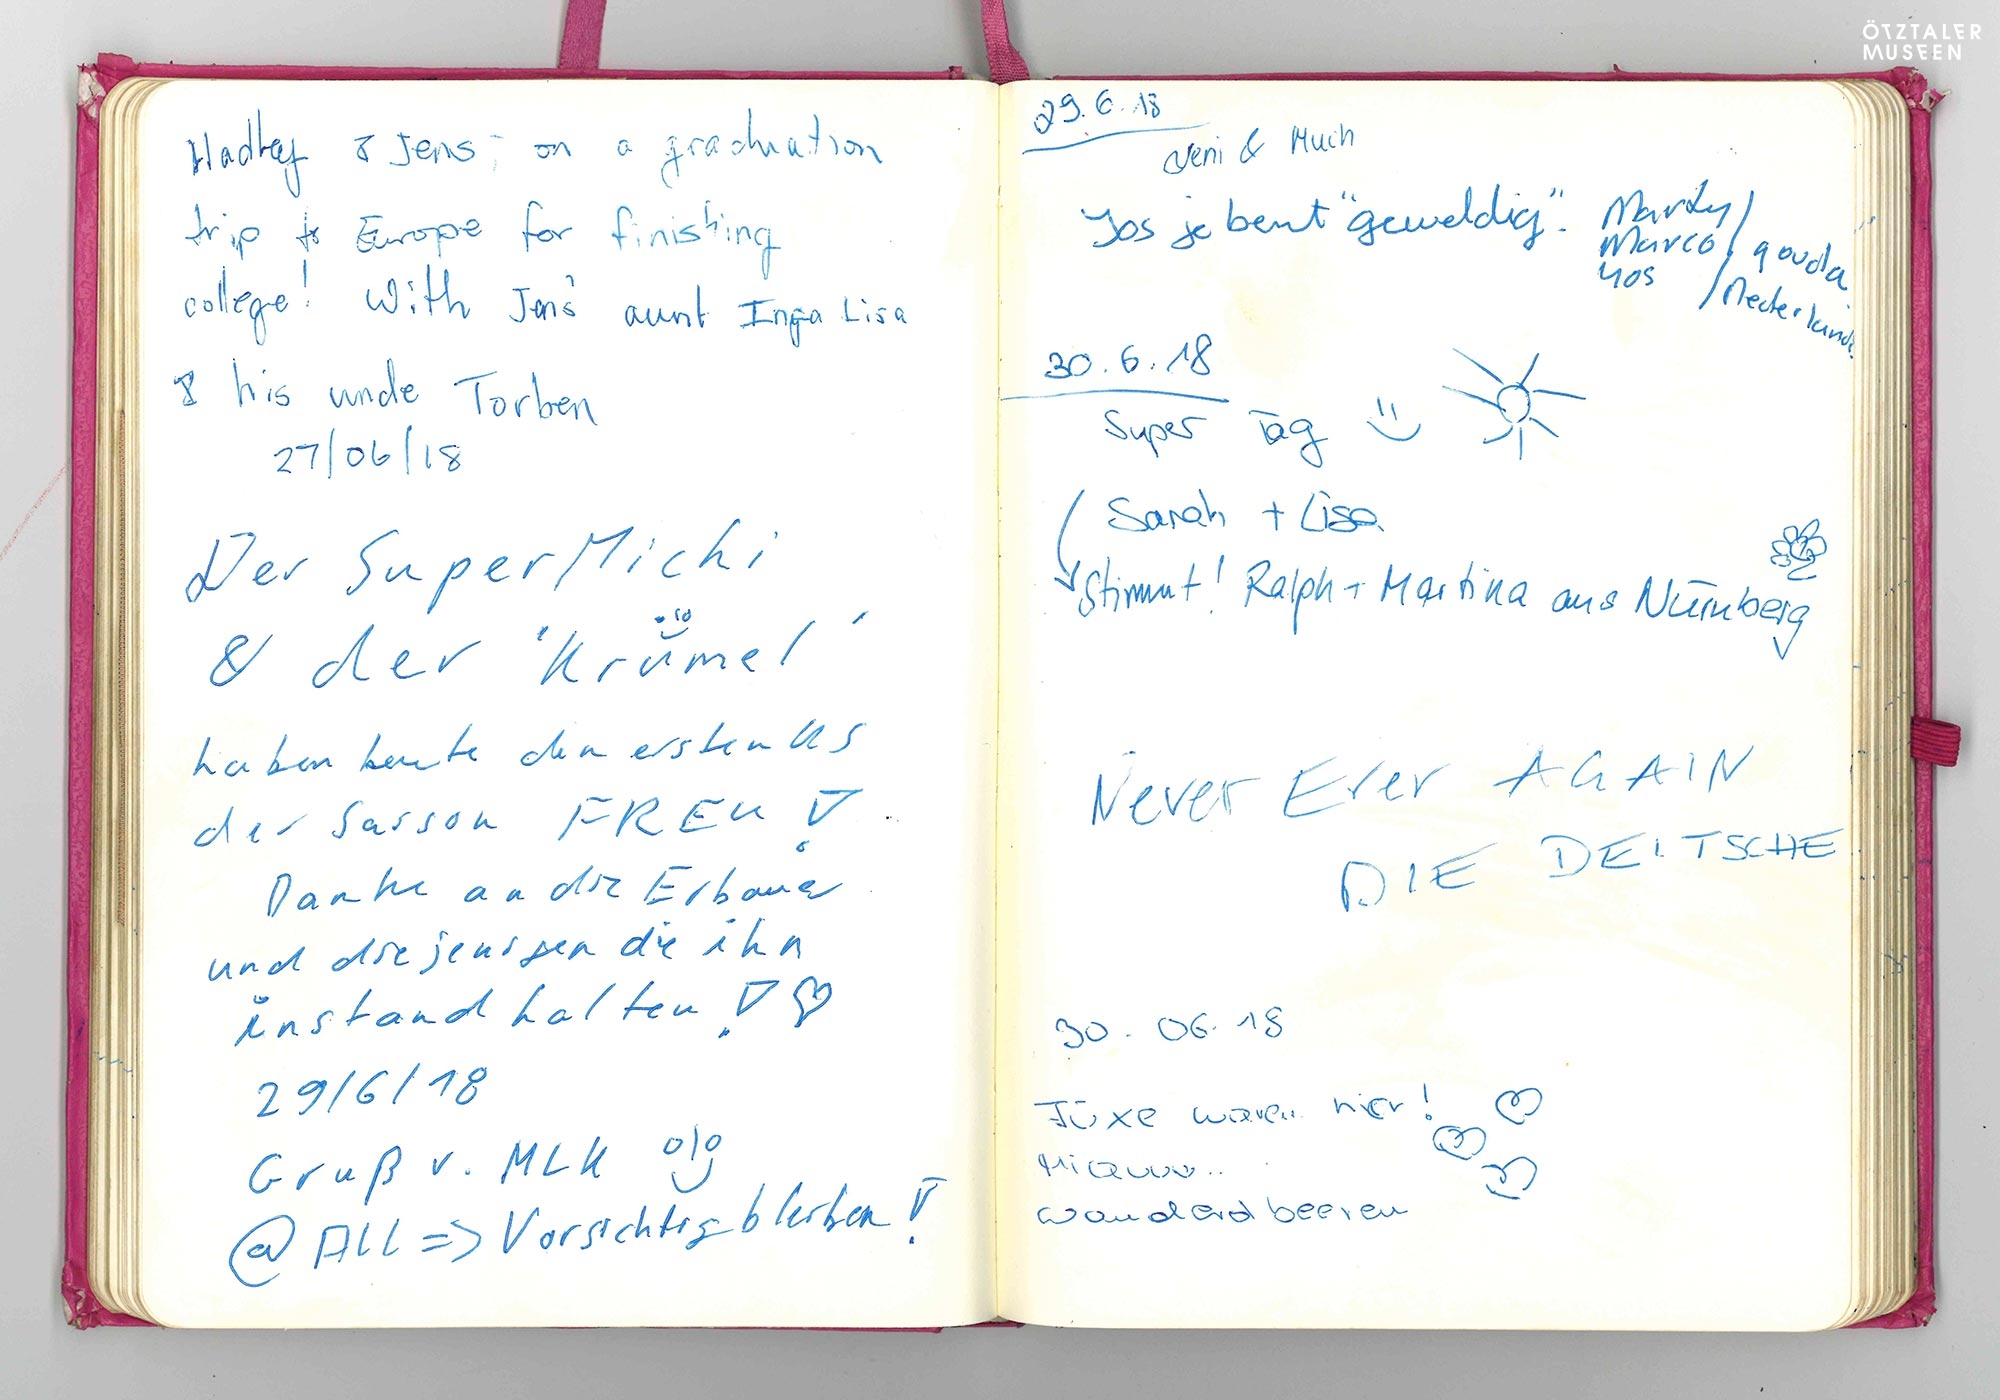 ÖTZTALER
MUSEEN
Hadley & Jens, on a graduation
trip to Europe for finishing
college! With Jens' aunt Inga Lisa
& his uncle Torben
27/06/18
Der SuperMichi
& der 'Krümel'
haben heute den ersten KS
der Saison FREU!
Danke an die Erbauer
und diejenigen die ihn
instand halten!
29/6/18
Gruß v. MLK
@ All => Vorsichtig bleiben!
29.6.18
Veni & Much
Jos je bent "geweldig".
Mardy/
Marco, gouda
Jos /Nederland.
30.6.18
Super Tag
Sarah + Lisa
Stimmt! Ralph + Martina aus Nürnberg
Never Ever AGAIN
DIE DEITSCHE
30.06.18
Füxe waren hier!
Miauuu..
wanderdbeeren